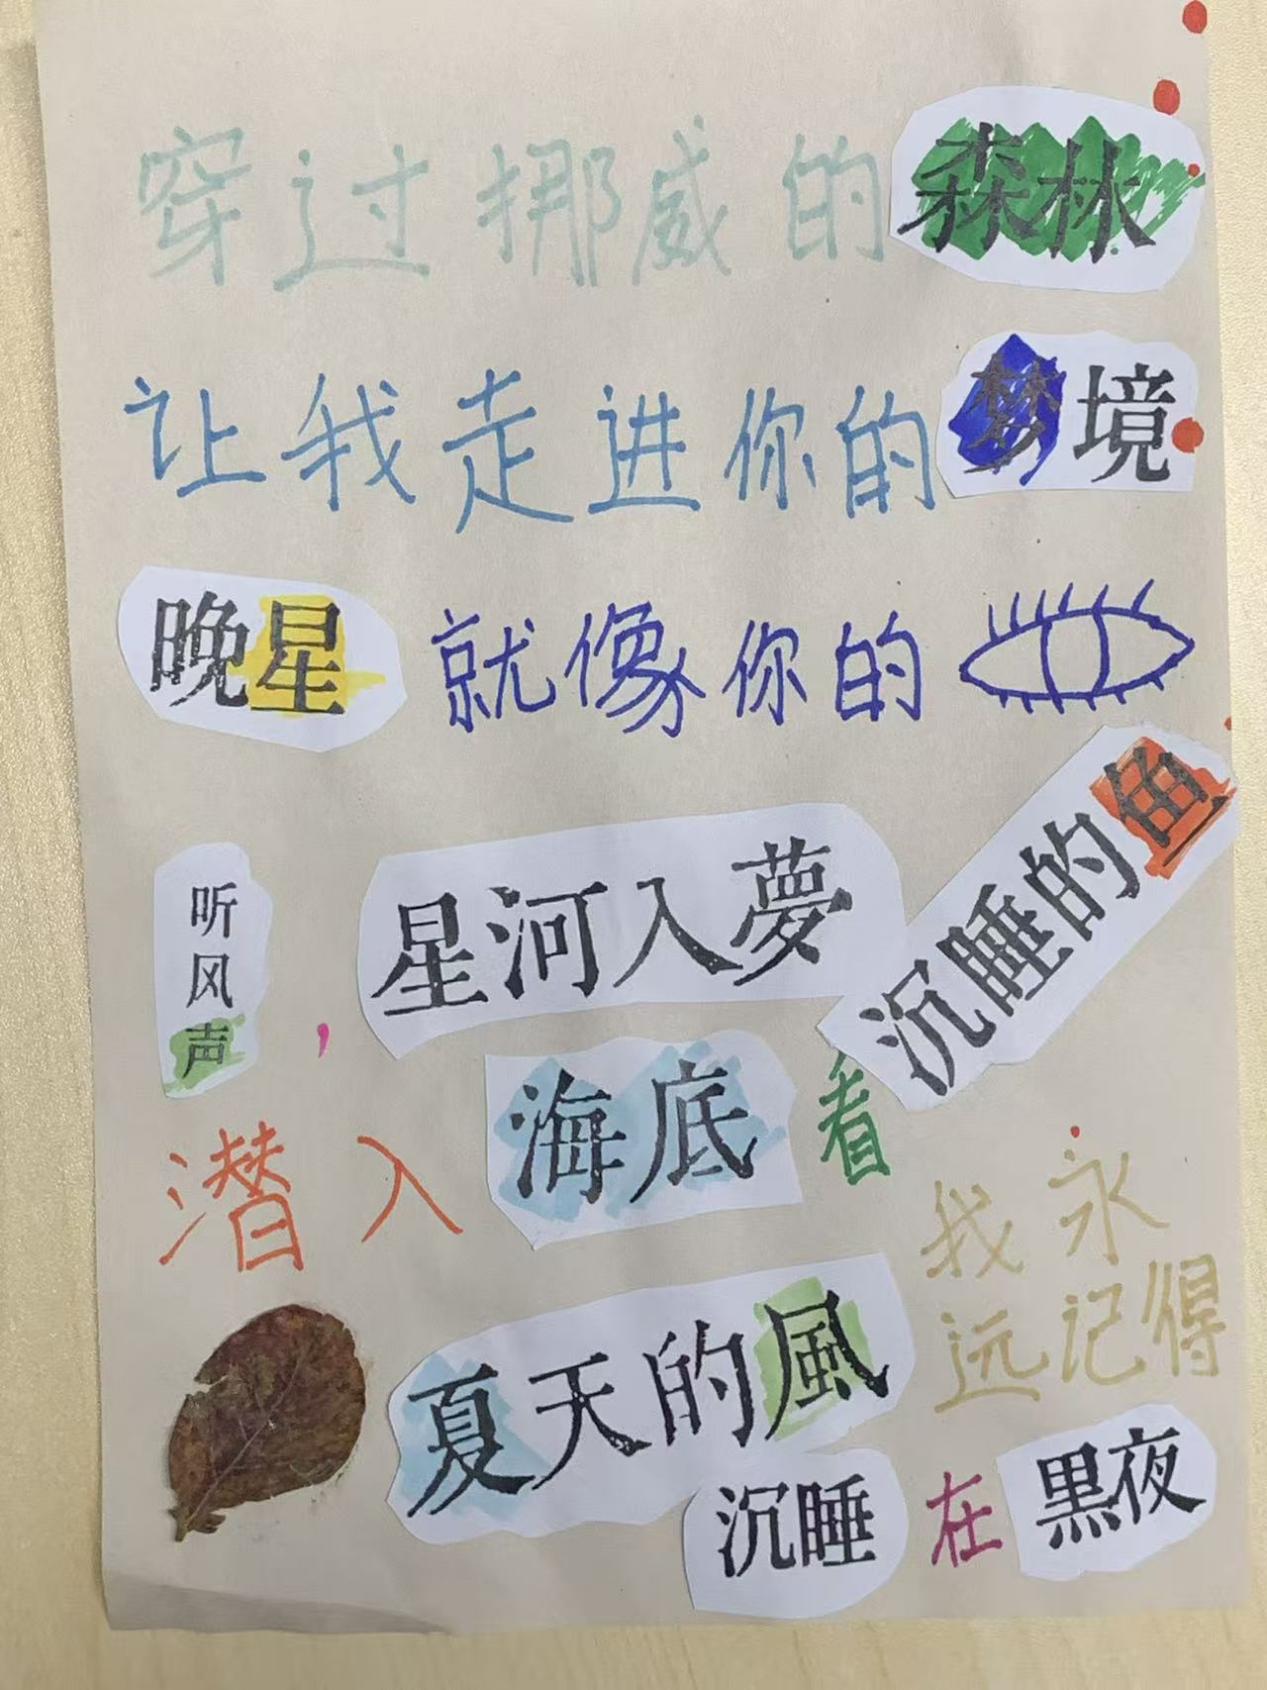 穿过挪威的森林
让我走进你的梦境
晚星就像你的
听风声，星河入夢
潜入海底看沉睡的鱼
我永远记得
夏天的風
沉睡在黑夜